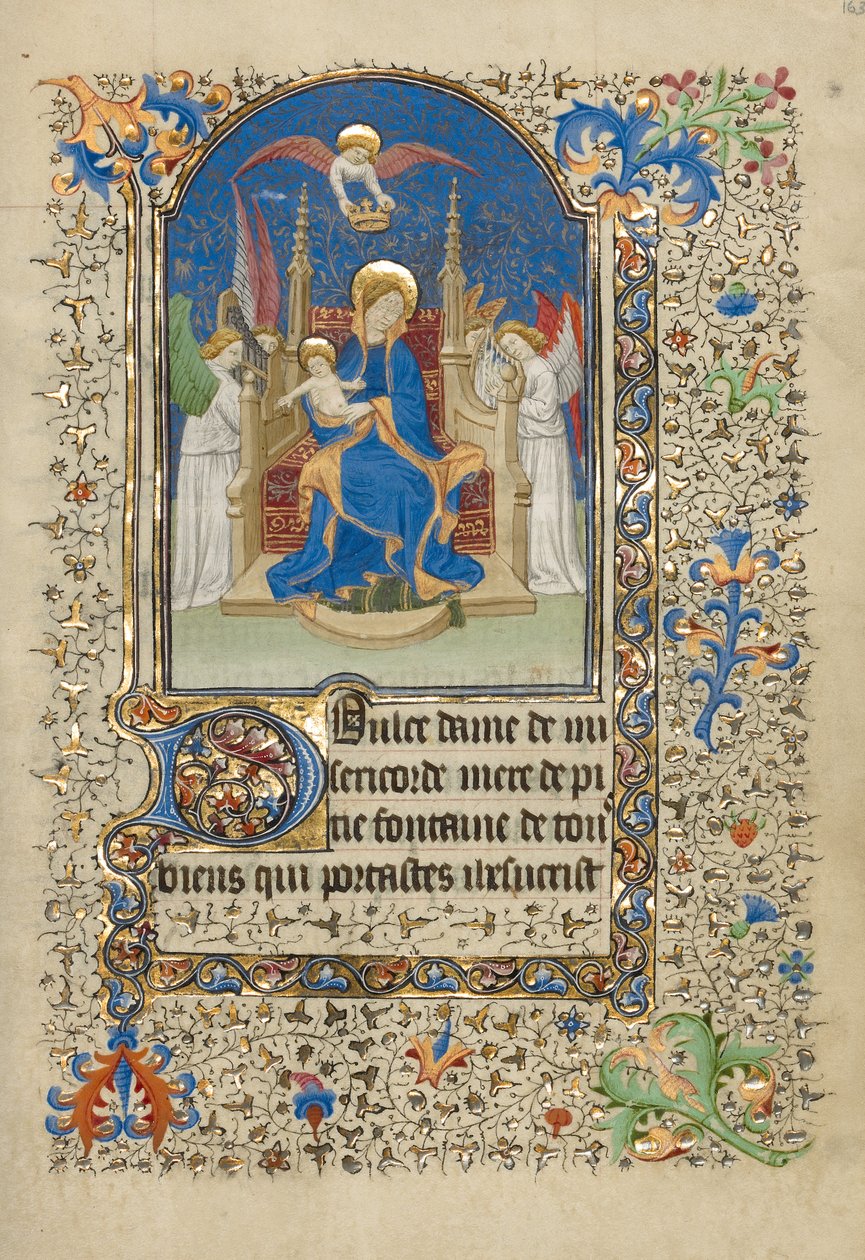 163
Dulce dame de mi
sericorde mere de pi
tie fontaine de tous
biens qui portastes ihesucrist